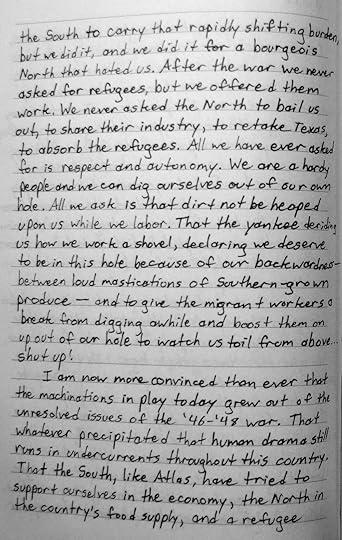 the South to carry that rapidly shifting burden,
but we did it, and we did it for a bourgeois
North that hated us. After the war we never
asked for refugees, but we offered them
work. We never asked the North to bail us
out, to share their industry, to retake Texas,
to absorb the refugees. All we have ever asked
for is respect and autonomy. We are a hardy
people and we can dig ourselves out of our own
hole. All we ask is that dirt not be heaped
upon us while we labor. That the yankee deriding
us how we work a shovel, declaring we deserve
to be in this hole because of our backwardness—
between loud mastications of Southern-grown
produce — and to give the migrant workers a
break from digging awhile and boost them on
up out of our hole to watch us toil from above...
shut up!
I am now more convinced than ever that
the machinations in play today grew out of the
unresolved issues of the '46-'48 war. That
whatever precipitated that human drama still
runs in undercurrents throughout this country.
That the South, like Atlas, have tried to
support ourselves in the economy, the North in
the country's food supply, and a refugee